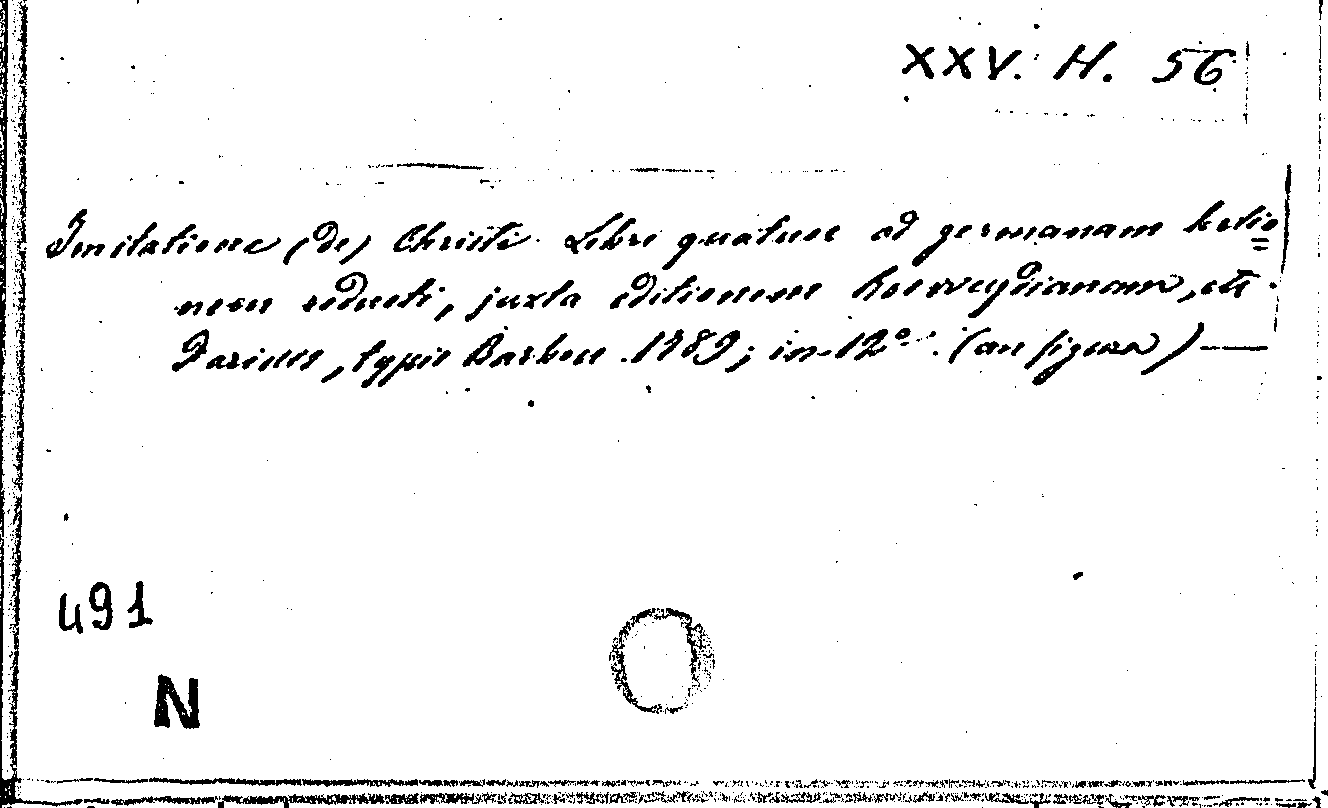 XXV. H. 56
Imitatione (De) Christi. Libri quatuor ad germanam lectio=
nem reducti, juxta editionem Rosweydianam, etc.
Parisiis, typis Barbou. 1789; in-12º. (cu figura) —
491
N